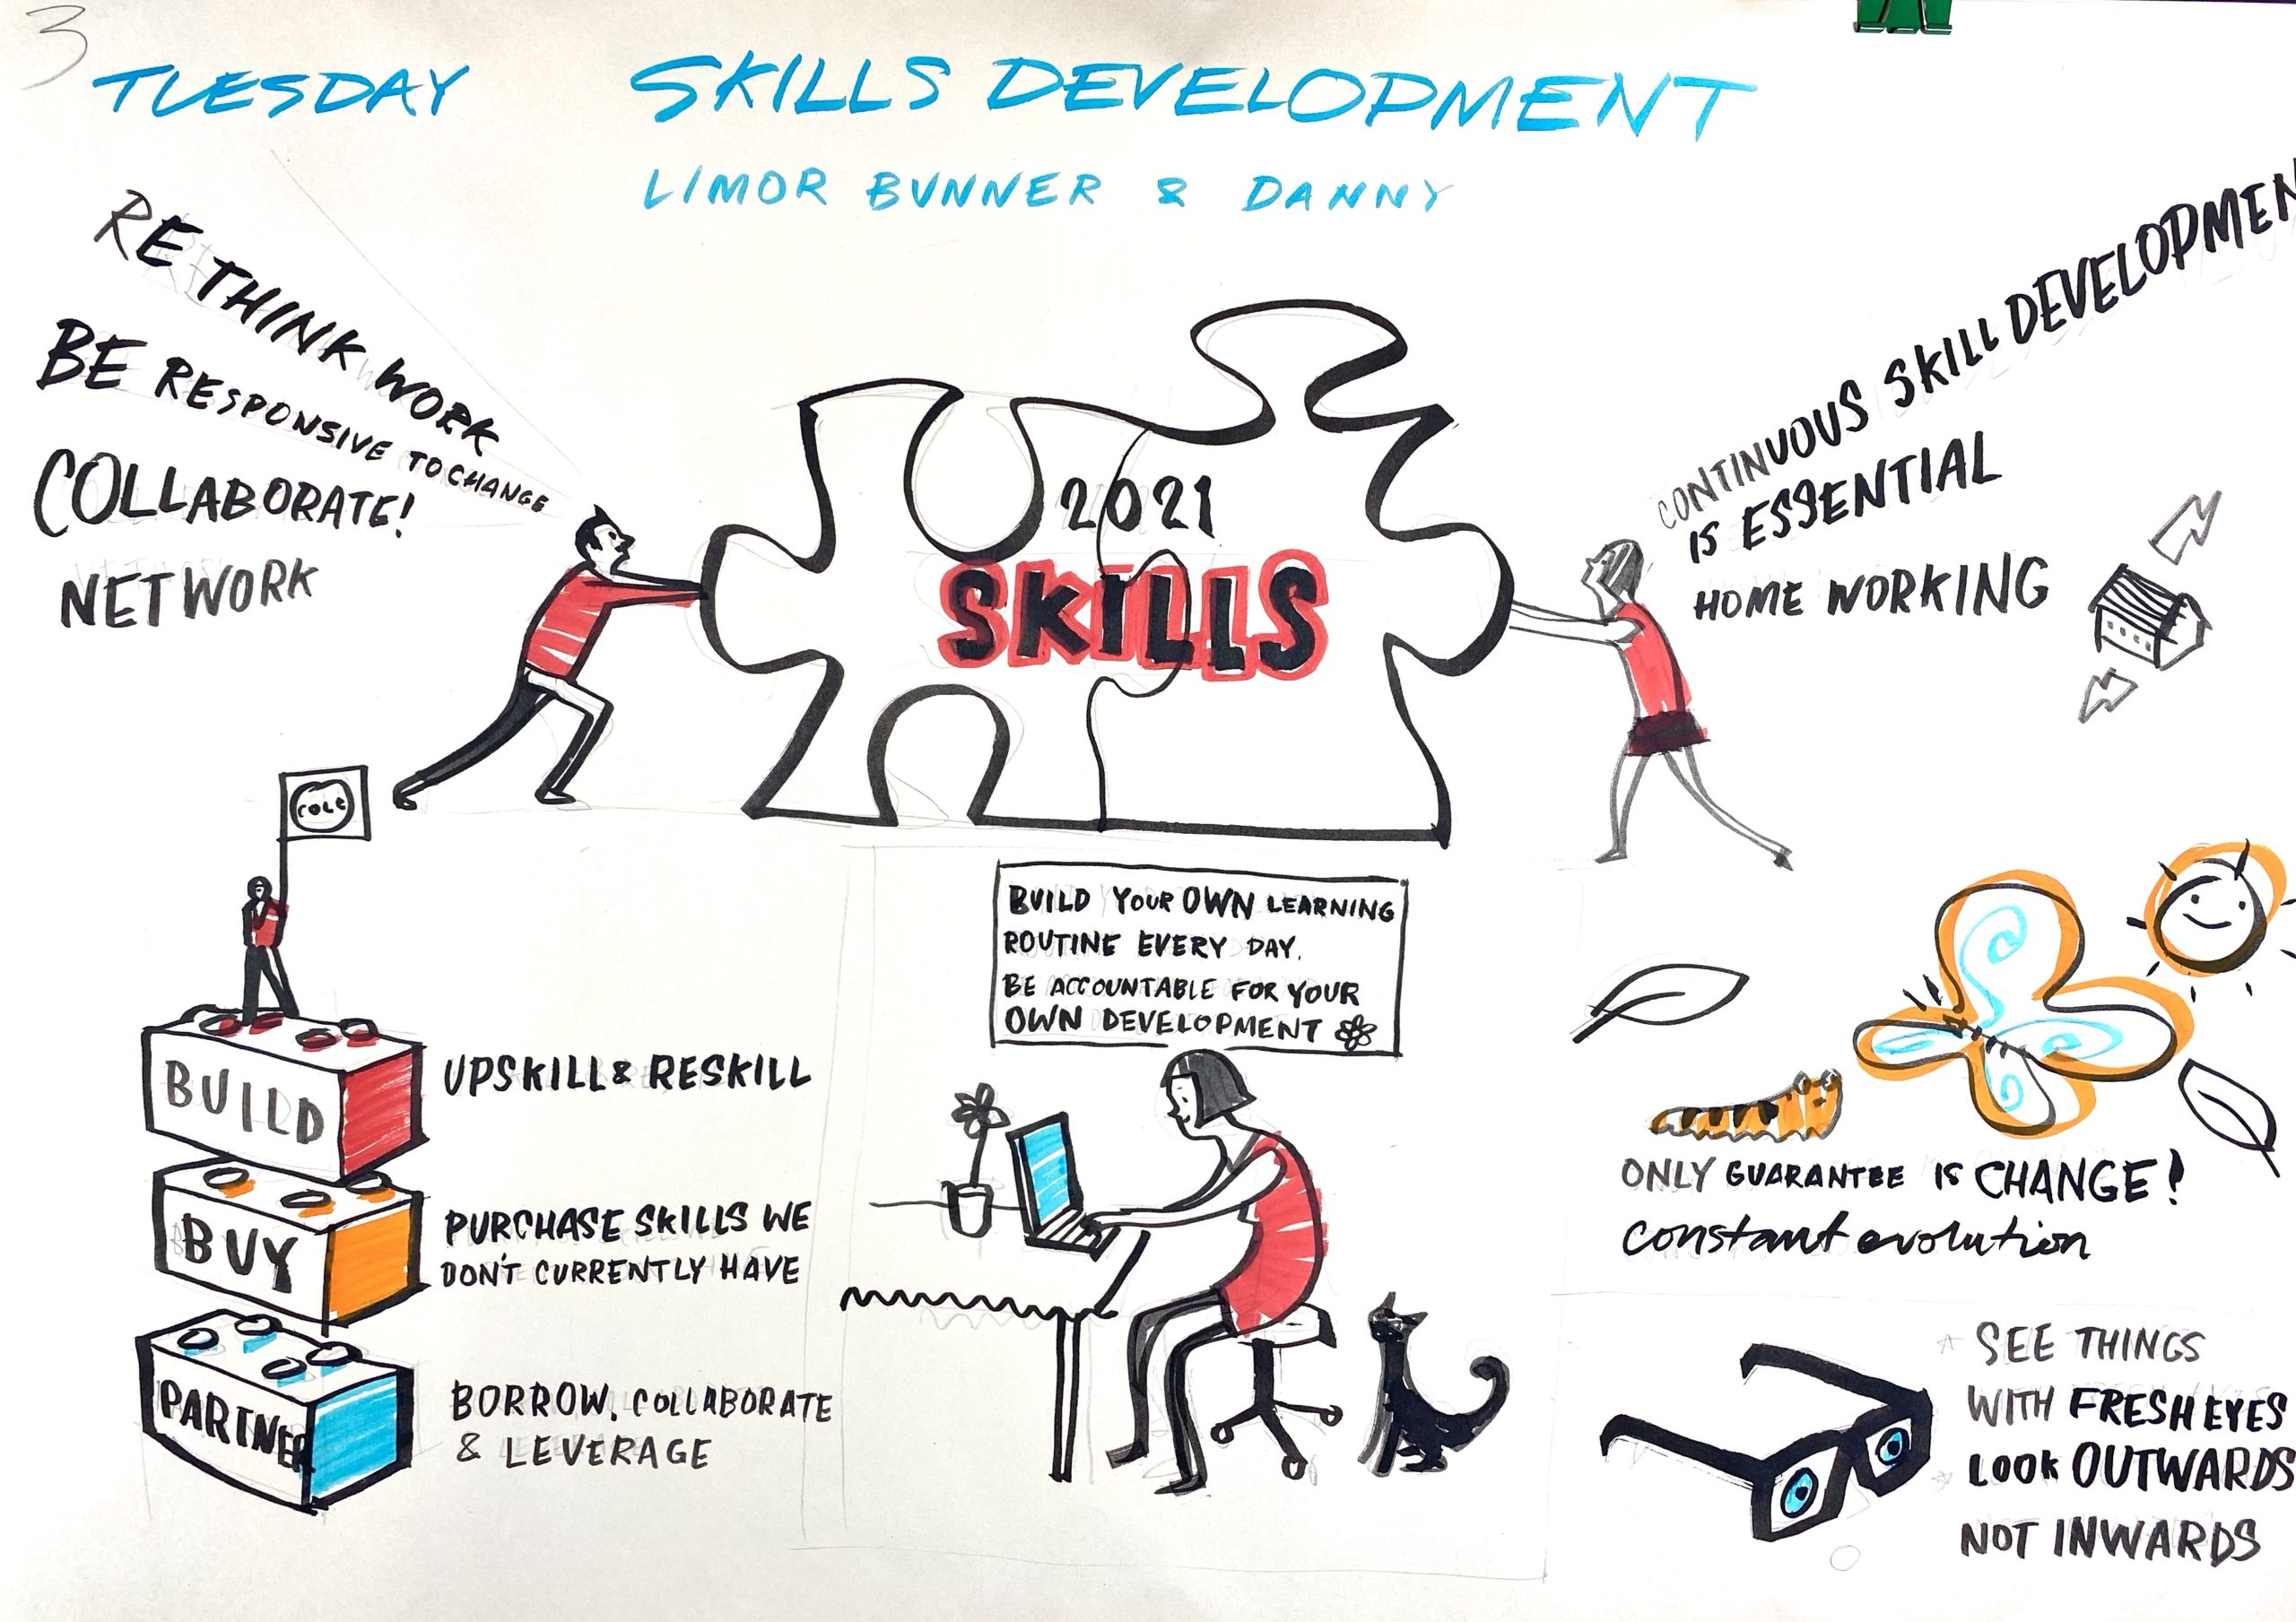 3
TUESDAY
SKILLS DEVELOPMENT
LIMOR BUNNER & DANNY
RE THINK WORK
BE RESPONSIVE TO CHANGE
COLLABORATE!
NETWORK
2021
SKILLS
CONTINUOUS SKILL DEVELOPMEN
IS ESSENTIAL
HOME WORKING
COLT
BUILD
UPSKILL & RESKILL
BUY
PURCHASE SKILLS WE
DON'T CURRENTLY HAVE
PARTNER
BORROW, COLLABORATE
& LEVERAGE
BUILD YOUR OWN LEARNING
ROUTINE EVERY DAY.
BE ACCOUNTABLE FOR YOUR
OWN DEVELOPMENT
ONLY GUARANTEE IS CHANGE!
constant evolution
SEE THINGS
WITH FRESH EYES
LOOK OUTWARDS
NOT INWARDS